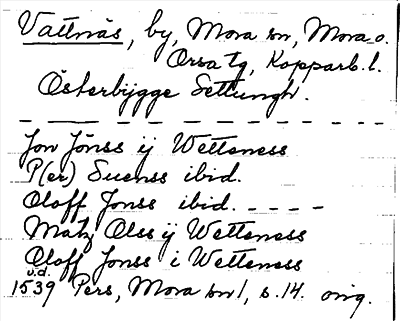 Vattnäs, by, Mora sn, Mora o.
Orsa tg, Kopparb. l.
Österbÿgge Settungh.
Jon Jönss ij Wetteness
P(er) Suenss ibid.
Oloff Jonss ibid. _ _ _ _
Matz Olss ij Wetteness
Oloff Jonss i Wetteness
u.d.
1539 Pers, Mora sn 1, s. 14. orig.